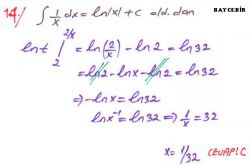 BAYCEBİR
14.) ∫ 1/x dx = ln|x| + c old. dan
ln t |₂^(2/x) = ln(2/x) - ln2 = ln32
= ln2 - lnx - ln2 = ln32
⇒ -lnx = ln32
lnx⁻¹ = ln32 ⇒ 1/x = 32
x = 1/32 CEVAP: C